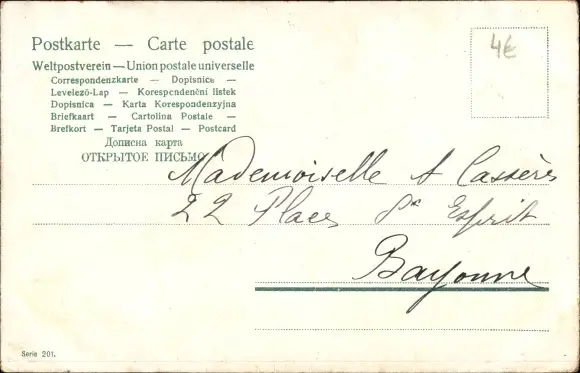 Postkarte — Carte postale
Weltpostverein — Union postale universelle
Correspondenzkarte — Dopisnice —
Levelező-Lap — Korespondenční listek
Dopisnica — Karta Korespondenzyjna
Briefkaart — Cartolina Postale —
Brefkort — Tarjeta Postal — Postcard
Дописна карта
ОТКРЫТОЕ ПИСЬМО
4€
Mademoiselle A Cassères
22 Place St Esprit
Bayonne
Serie 201.